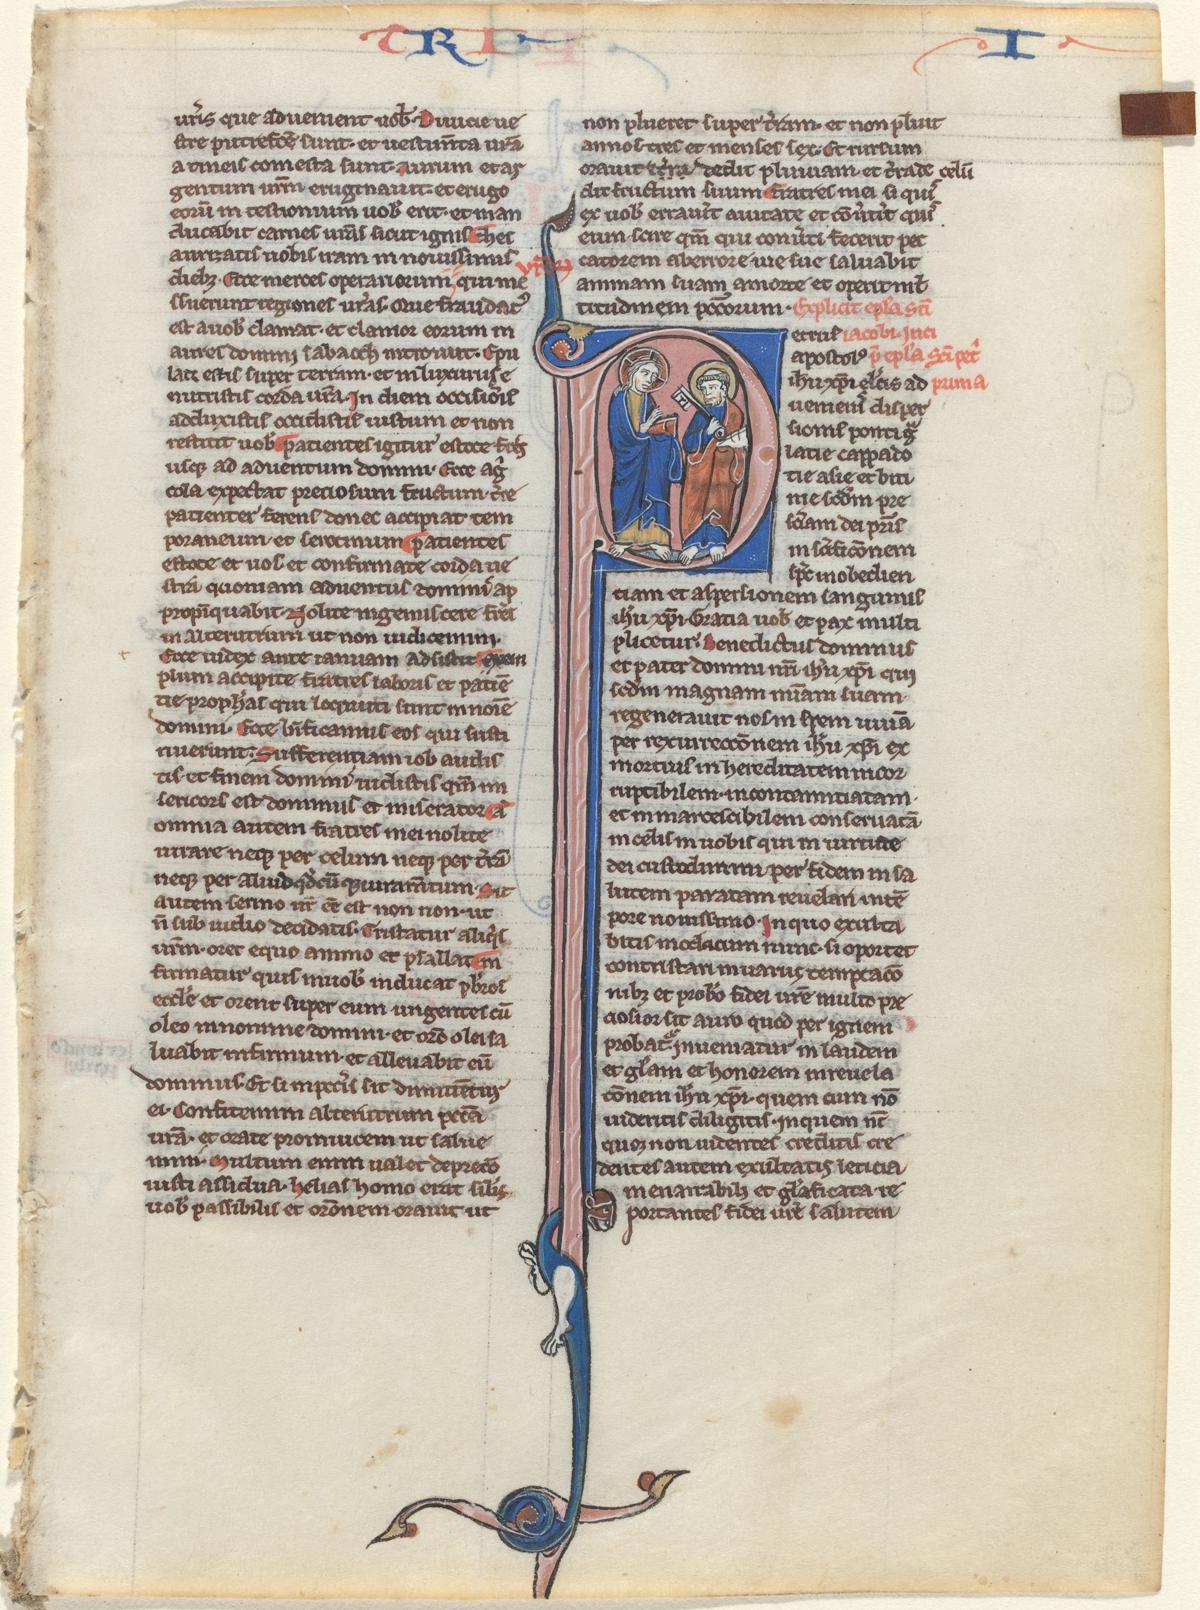 TRI
I
uris que aduenient uob. Diuicie ue
stre putrefce sunt. et uestimta ura
a tineis comesta sunt. Aurum et ar
gentum urm eruginauit. et erugo
eorum in testionium uob erit. et man
ducabit carnes uras sicut ignis. Thes
aurizatis nobis iram in nouissimis
dieb; Ecce merces operariorum, qui me
ssuerunt regiones uras. Que fraudat
est auob clamat. et clamor eorum in
aures domini sabaoth introiuit. Epu
lati estis super terram. et in luxuriis e
nutristis corda ura. In diem occisiois
adduxistis occidistis iustum et non
restitit uob. patientes igitur estote frs
usq; ad aduentum domini. Ecce agi
cola expectat preciosum fructum. tre
patienter ferens donec accipiat tem
poraneum. et serotinum. patientes
estote et uos et confirmate corda ue
stra quoniam aduentus domini ap
propiquabit. Nolite ingemiscere fres
in alterutrum ut non iudicemini.
Ecce iudex ante ianuam adsistit. exem
plum accipite fratres laboris et patie
tie prophas qui loquuti sunt in noie
domini. Ecce bificamus eos qui susti
nuerunt. Sufferentiam iob audis
tis et finem domini uidistis qm mi
sericors est dominus et miserator. A
omnia autem fratres mei nolite
iurare neq; per celum neq; per tra
neq; per aliud qdcu q; iuramtum. Sit
autem sermo ur est est non non. ut
n sub iudicio decidatis. Tristatur aliqs
urm. oret equo animo et psallat. In
firmatur quis in uob inducat pbros
eccle et orent super eum ungentes cu
oleo in nomine domini. et oro olei sa
luabit infirmum. et alleuabit eu
dominus. Et si in pctis sit dimittentur
ei. Confitemini alterutrum pcca
ura. et orate pro inuicem ut salue
mini. Multum enim ualet depreco
iusti assidua. helias homo erat silis
uob passibilis et oronem orauit ut
non plueret super tram. et non pluit
annos tres et menses sex. Et rursum
orauit dedit pluuiam. et tra de celu
dit fructum suum. fratres mei si qui
ex uob errauit auitate et couit quis
eum. scire qm qui conuti fecerit pec
catorem aberrore uie sue saluabit
animam suam amorte et operit ml
titudinem pccorum. Explicit epla sci
iacobi. Inci
p epla sci pet
prima
etrus
apostolus
ihu xpi elcis ad
uenenis disper
sionis ponti ga
latie cappado
tie asie et biti
nie scdm pre
sciam dei pris
in scificonem
spc inobedien
tiam et aspersionem sanguinis
ihu xpi. Gratia uob et pax multi
plicetur. Benedictus dominus
et pater domini nri ihu xpi qui
scdm magnam miam suam
regenerauit nos in spem uiua
per rexurreccoem ihu xpi ex
mortuis in hereditatem incor
ruptibilem. incontaminatam.
et in marcescibilem conseruata
in celis in uobis qui in uirtute
dei custodimini per fidem in sa
lutem paratam reuelari in te
pore nouissimo. In quo exulta
bitis modicum nunc. si oportet
contristari in uariis temptaco
nib; et probo fidei ure multo pre
ciosior sit auro quod per ignem
probat. inueniatur in laudem
et glam et honorem in reuela
conem ihu xpi. quem cum no
uideritis diligitis. in quem nc
quoq; non uidentes creditis cre
dentes autem exultatis leticia
inenarrabili et glificata re
portantes fidei ure salutem